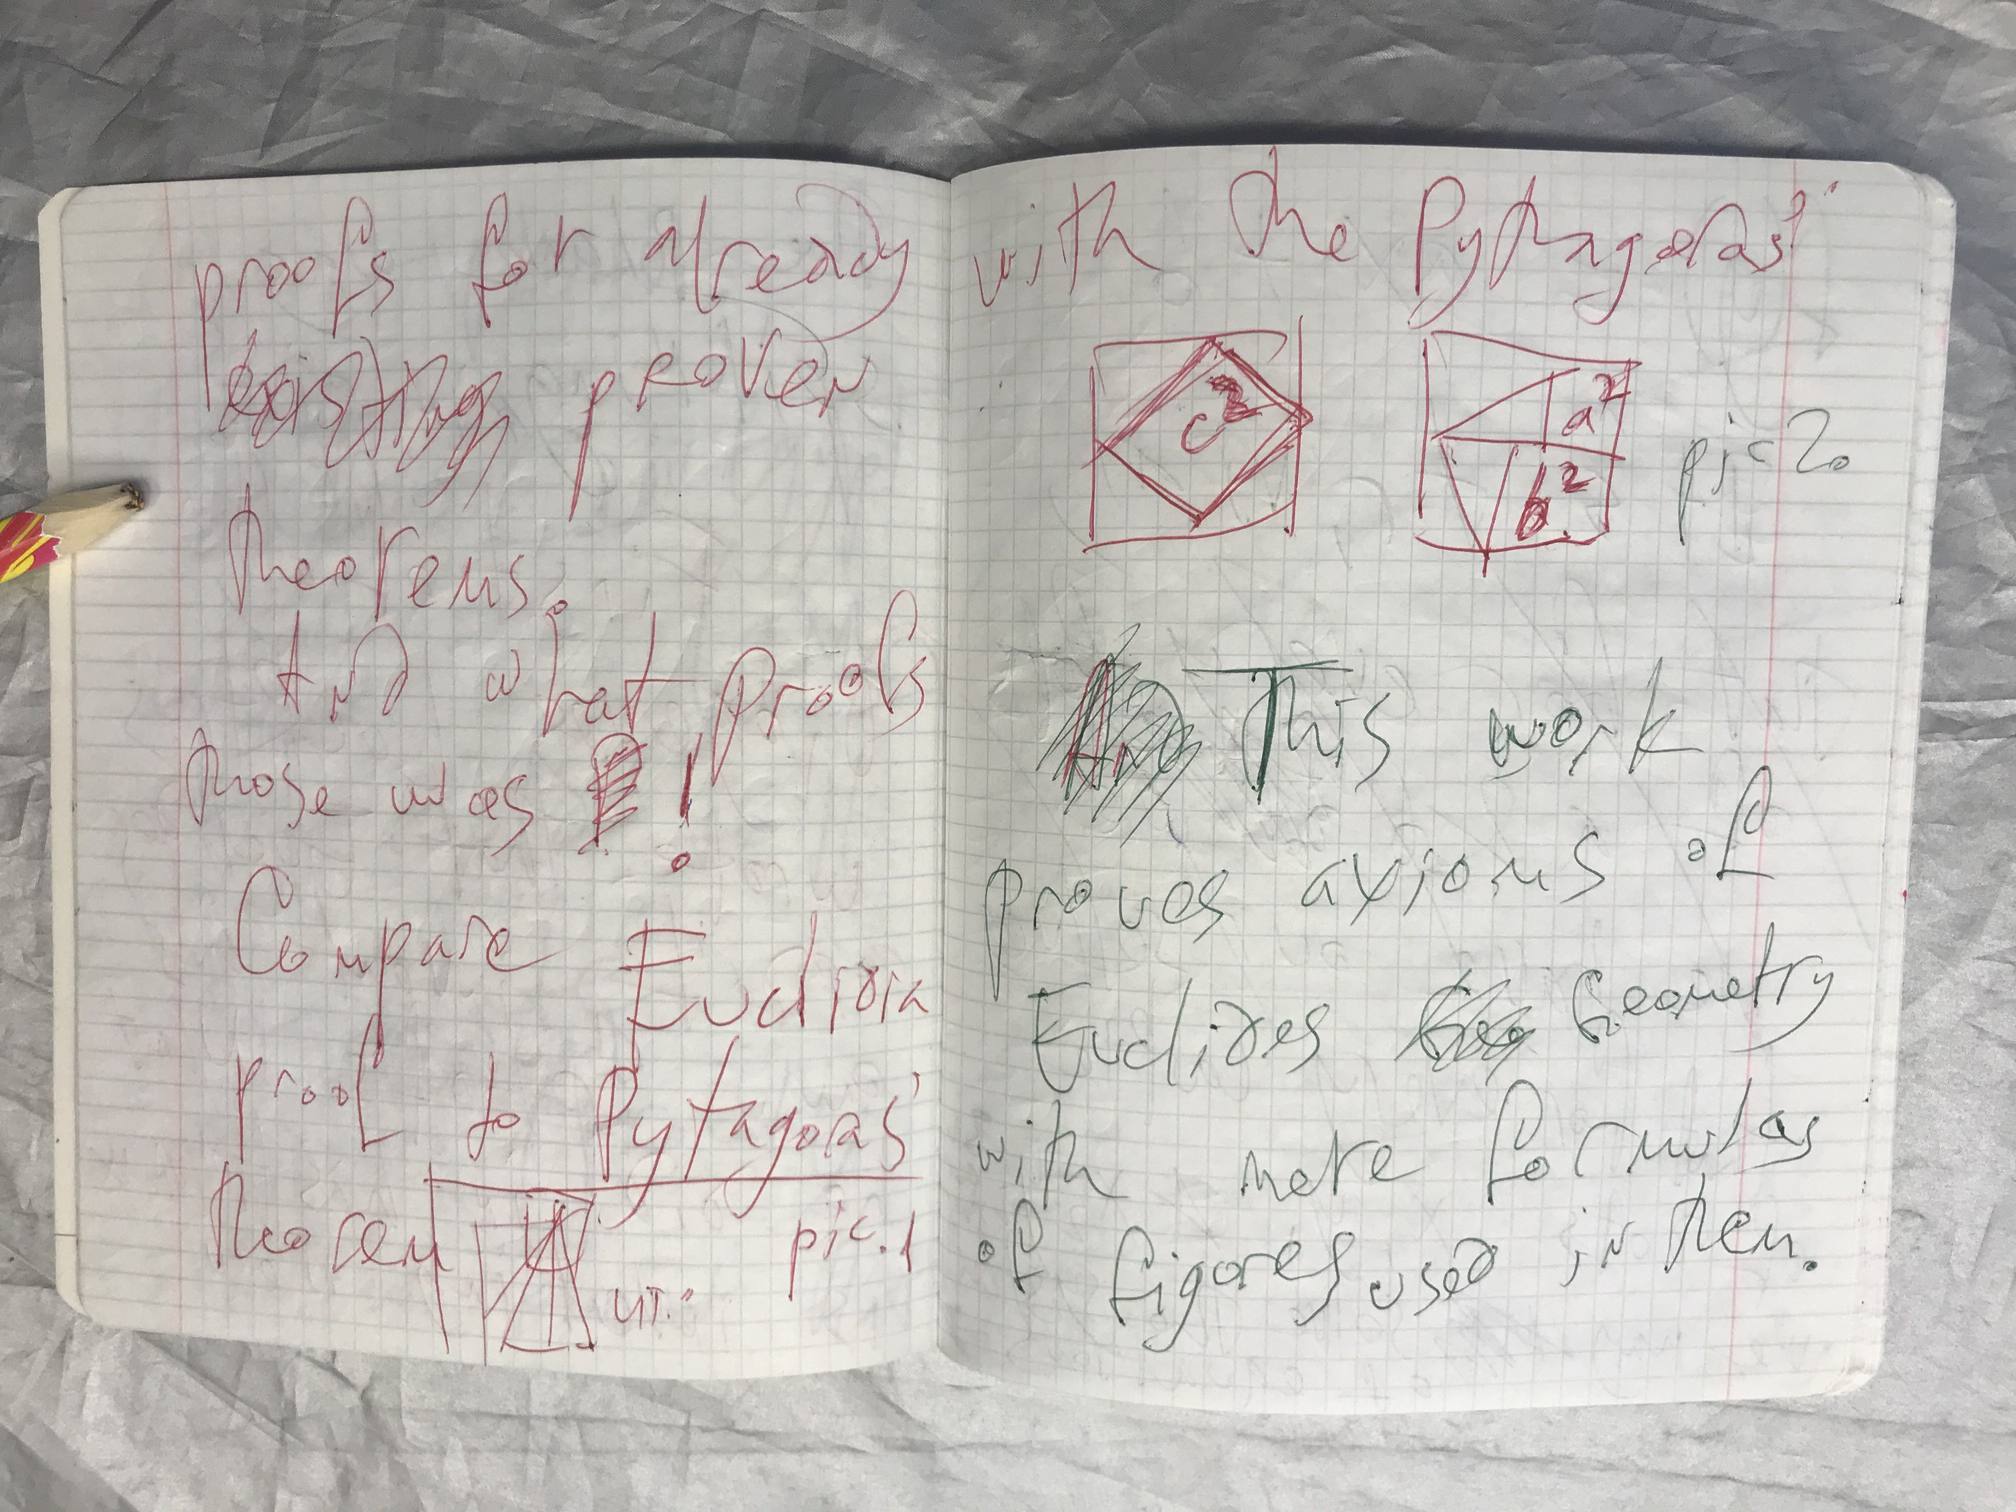 proofs for already
proven
theorems.
And what proofs
those was !
Compare Euclidia
proof to Pytagoras'
theorem
pic. 1
with the Pythagoras'
c²
a²
b²
pic 2.
This work
proves axioms of
Euclides Geometry
with mere formulas
of figores used in them.